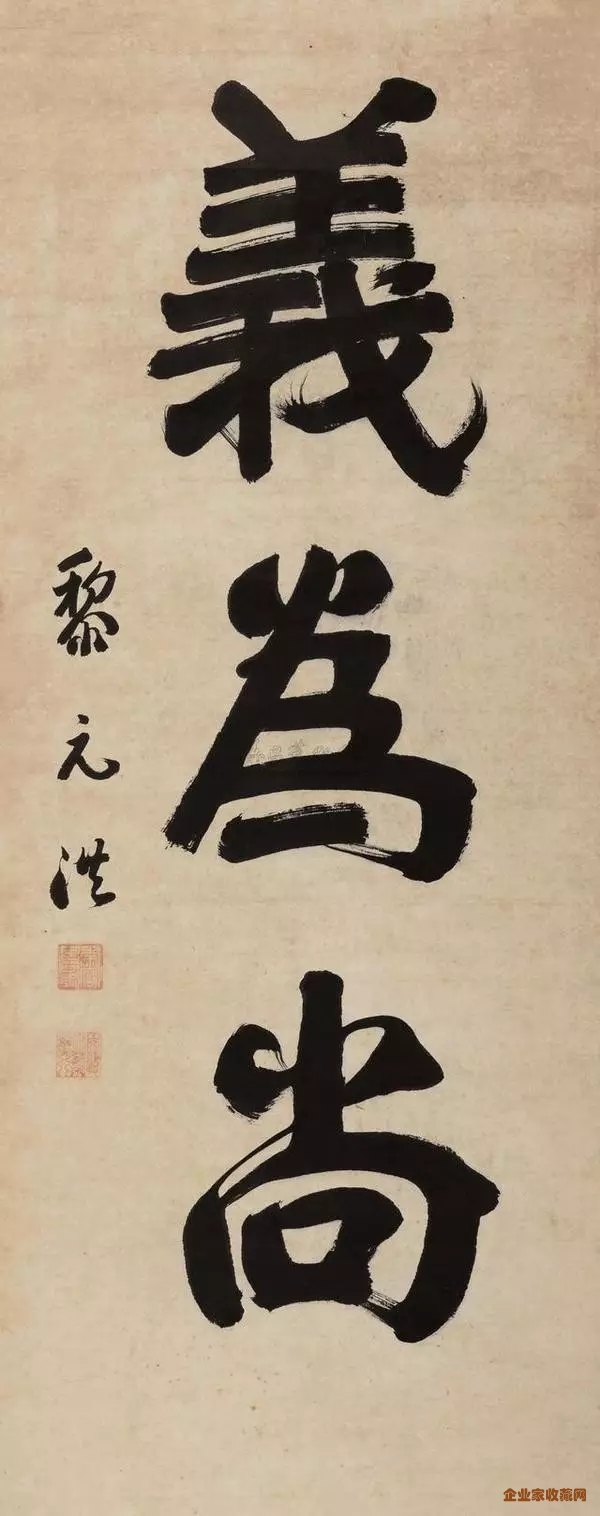 義為尚
黎元洪
企业家收藏网